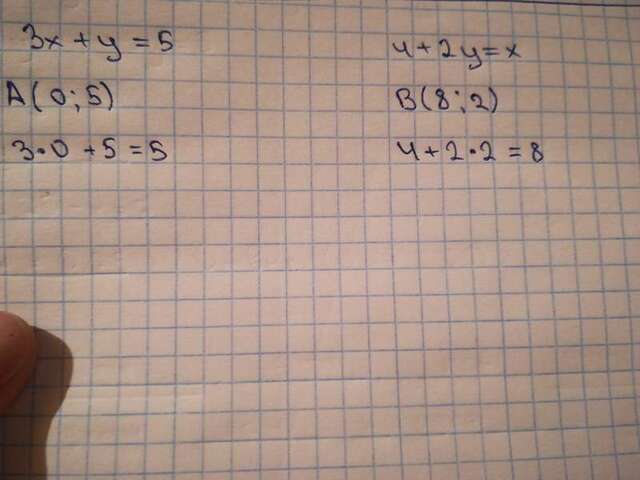 3x + y = 5
A(0;5)
3·0 + 5 = 5
4 + 2y = x
B(8;2)
4 + 2·2 = 8